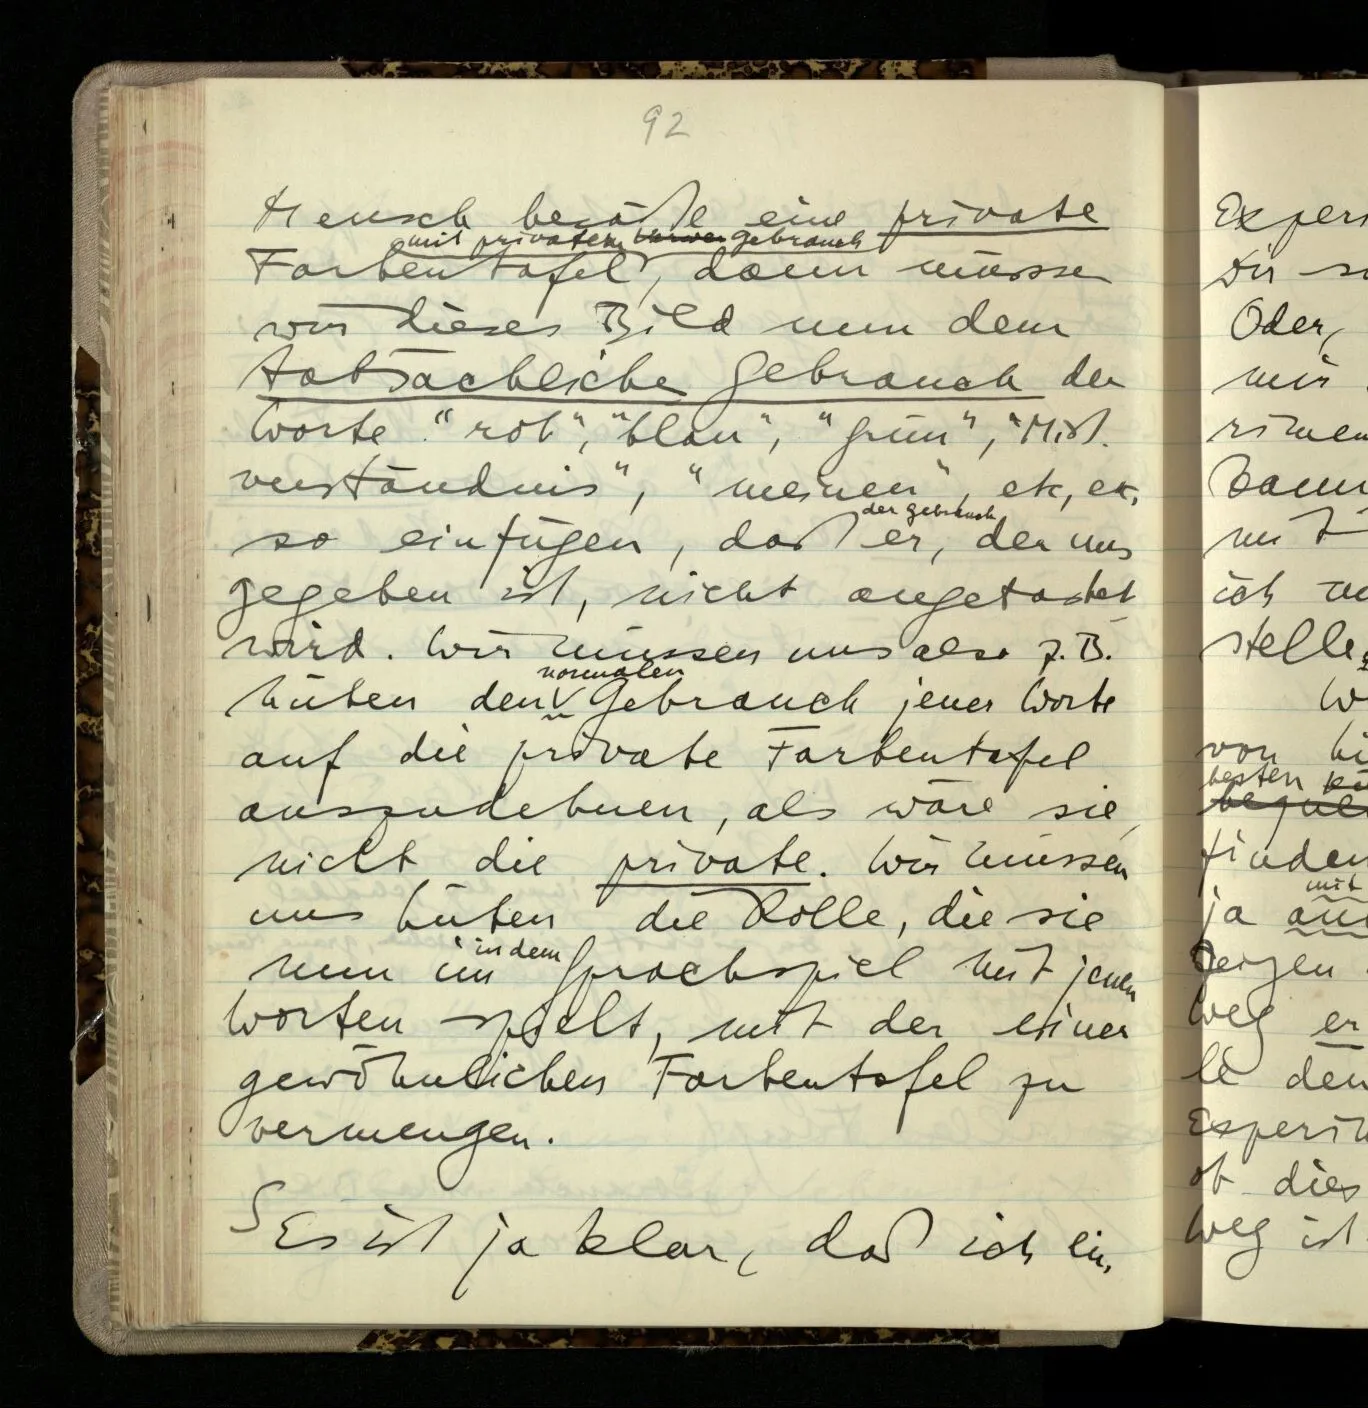 92
Mensch besäße eine private
mit privatem gebrauch
Farbentafel, dann müssen
wir dieses Bild nun dem
tatsächliche Gebrauch der
Worte "rot", "blau", "grün", "Miß-
verständnis", "meinen", etc, etc,
so einfügen, daß er, der uns
der gebrauch
gegeben ist, nicht angetastet
wird. Wir müssen uns also z.B.
hüten den Gebrauch jener Worte
normalen
auf die private Farbentafel
auszudehnen, als wäre sie
nicht die private. Wir müssen
uns hüten die Rolle, die sie
nun im Sprachspiel mit jenen
in dem
Worten spielt, mit der einer
gewöhnlichen Farbentafel zu
vermengen.
S Es ist ja klar, daß ich ein,
Exper
Dir
Oder,
mir
rimen
kann
mit
ich
stelle
W
von
besten
finden
mit
ja
zeigen
Weg er
le den
Experi
ob dies
Weg ist